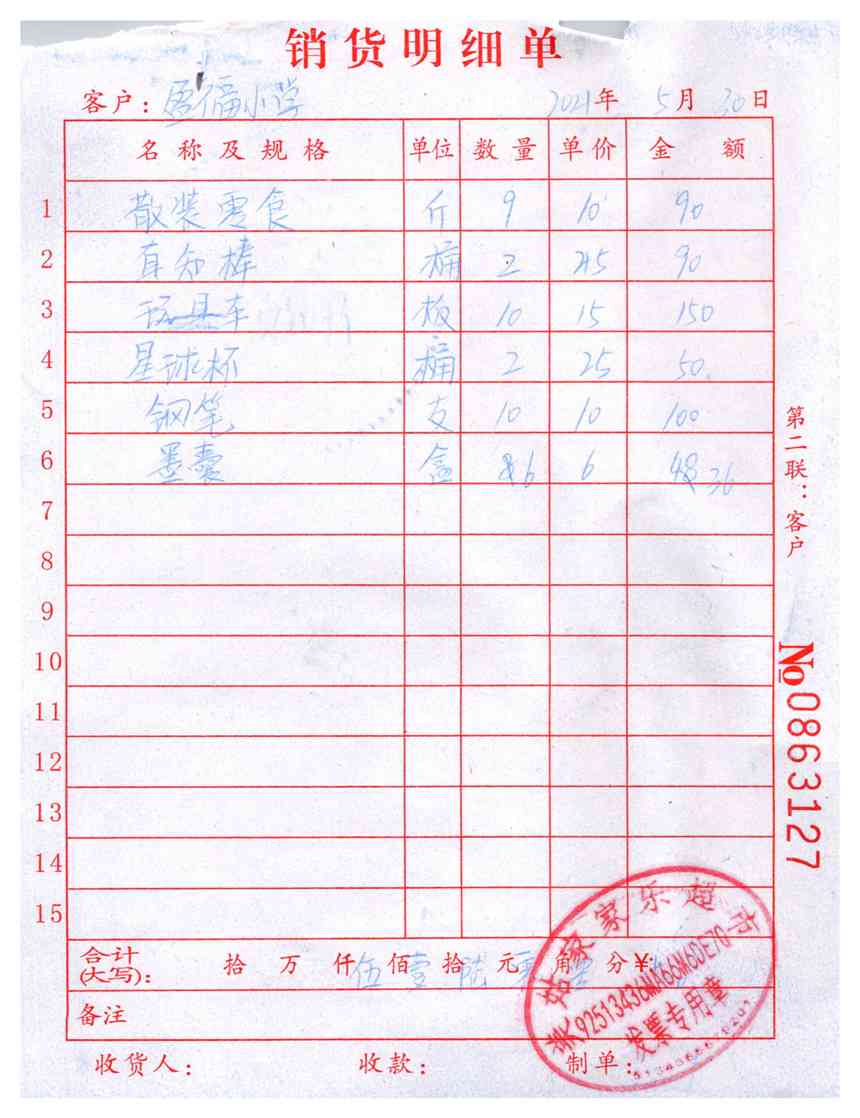 销货明细单
客户：盈福小学 2021年5月30日
名称及规格 单位 数量 单价 金额
1 散装零食 斤 9 10 90
2 真知棒 桶 2 45 90
3 玩具车 板 10 15 150
4 星球杯 桶 2 25 50
5 钢笔 支 10 10 100
6 墨囊 盒 6 6 48 36
7
8
9
10
11
12
13
14
15
合计(大写)： 拾 万 仟 伍佰 壹拾 陆元 零角 零分 ¥:
备注
收货人： 收款： 制单：
第二联：客户
№0863127
家家乐超市
发票专用章